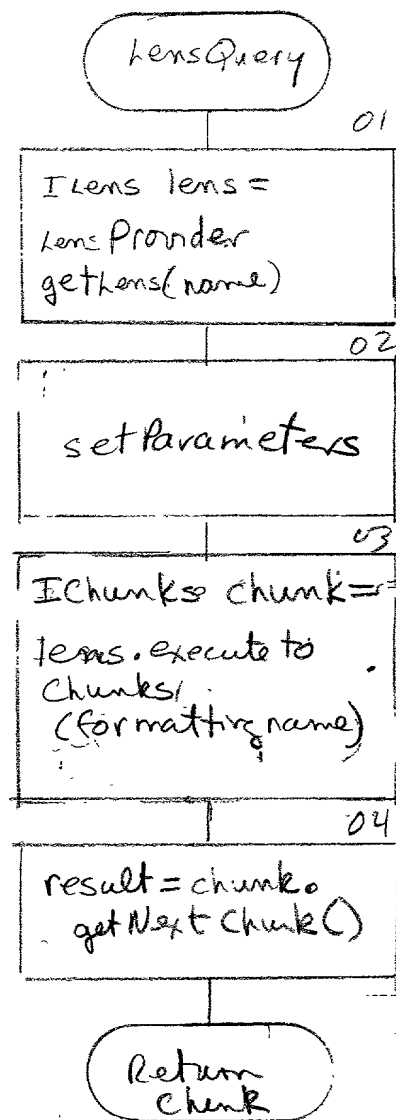 LensQuery
01
ILens lens =
Lens Provider
getLens(name)
02
setParameters
03
IChunks chunk =
lens.execute to
Chunks
(formatting name)
04
result = chunk.
getNext Chunk()
Return
Chunk